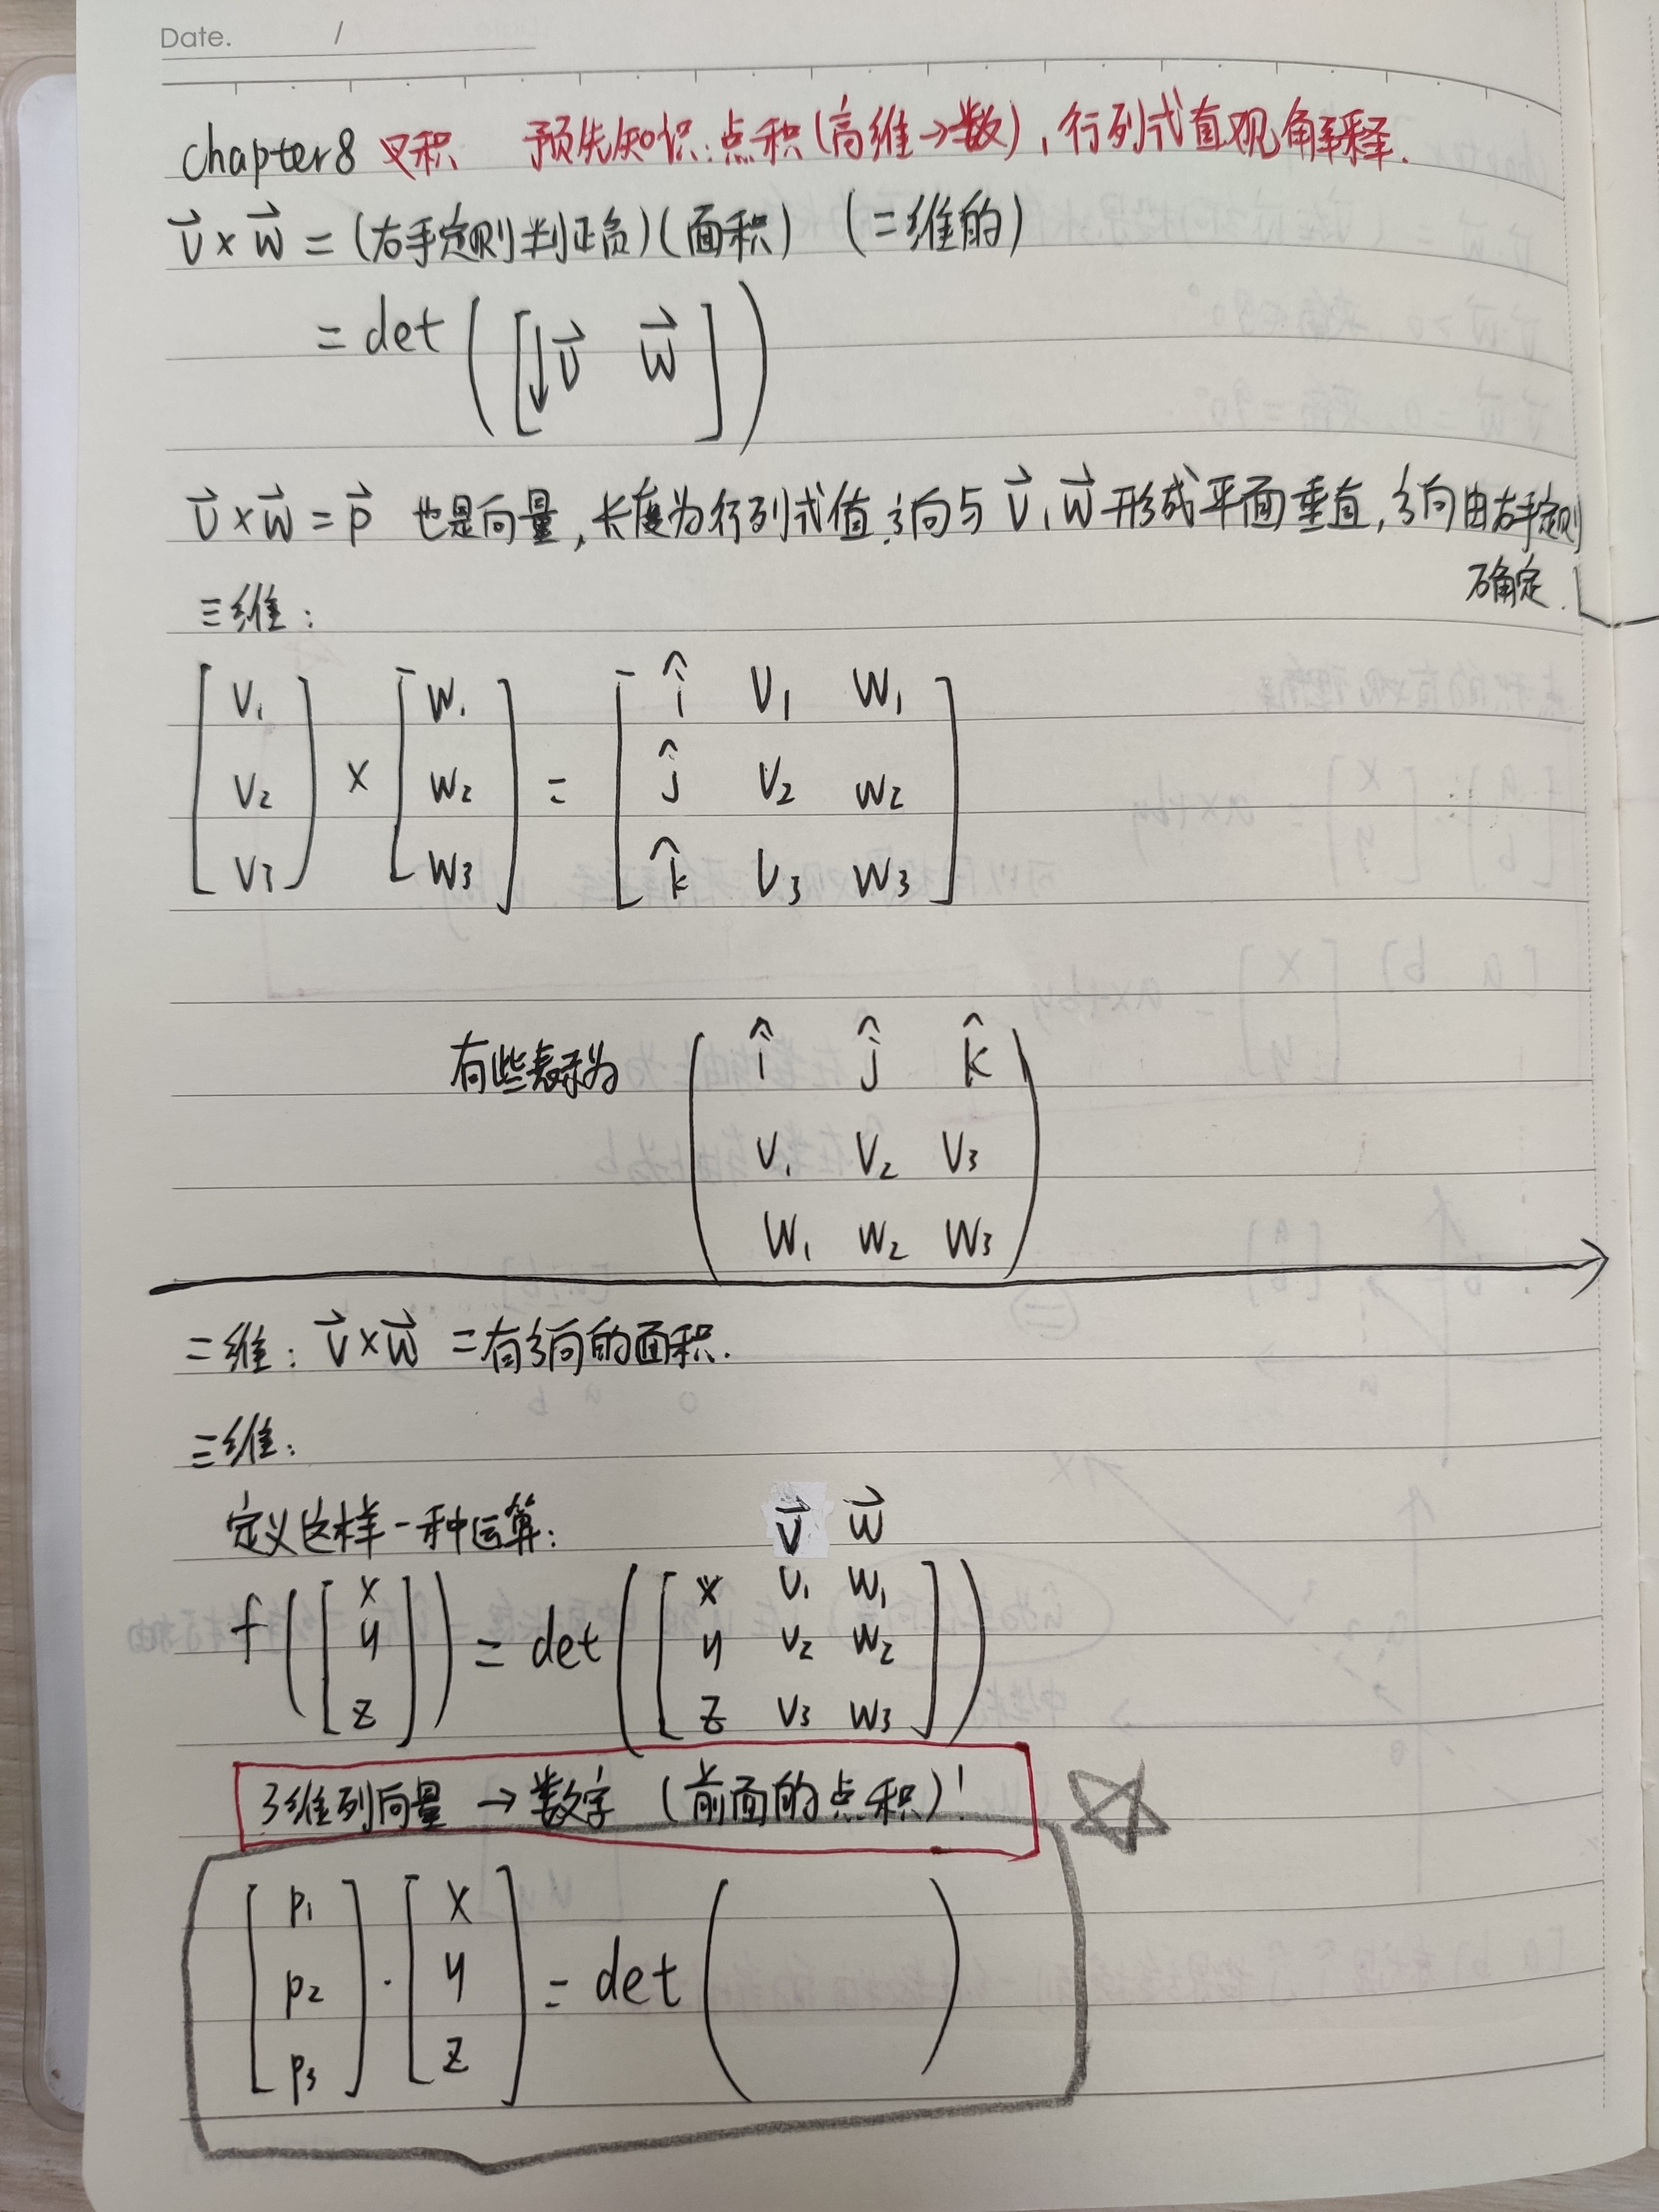 Date. /
chapter8 叉积 预先知识:点积(高维→数),行列式直观解释.
v⃗ × w⃗ = (右手定则判正负)(面积) (二维的)
= det ( [ ↓v⃗ w⃗ ] )
v⃗ × w⃗ = p⃗ 也是向量,长度为行列式值.方向与 v⃗, w⃗ 形成平面垂直,方向由右手定则
确定.
三维:
[ v₁ ] [ w₁ ] [ î v₁ w₁ ]
[ v₂ ] × [ w₂ ] = [ ĵ v₂ w₂ ]
[ v₃ ] [ w₃ ] [ k̂ v₃ w₃ ]
有些表示为 ( î ĵ k̂ )
( v₁ v₂ v₃ )
( w₁ w₂ w₃ )
二维: v⃗ × w⃗ = 有方向的面积.
三维:
定义这样一种运算: v⃗ w⃗
f ( [ x ] ) = det ( [ x v₁ w₁ ] )
[ y ] [ y v₂ w₂ ]
[ z ] [ z v₃ w₃ ]
3维列向量 → 数字 (前面的点积)!
[ p₁ ] [ x ]
[ p₂ ] · [ y ] = det ( )
[ p₃ ] [ z ]